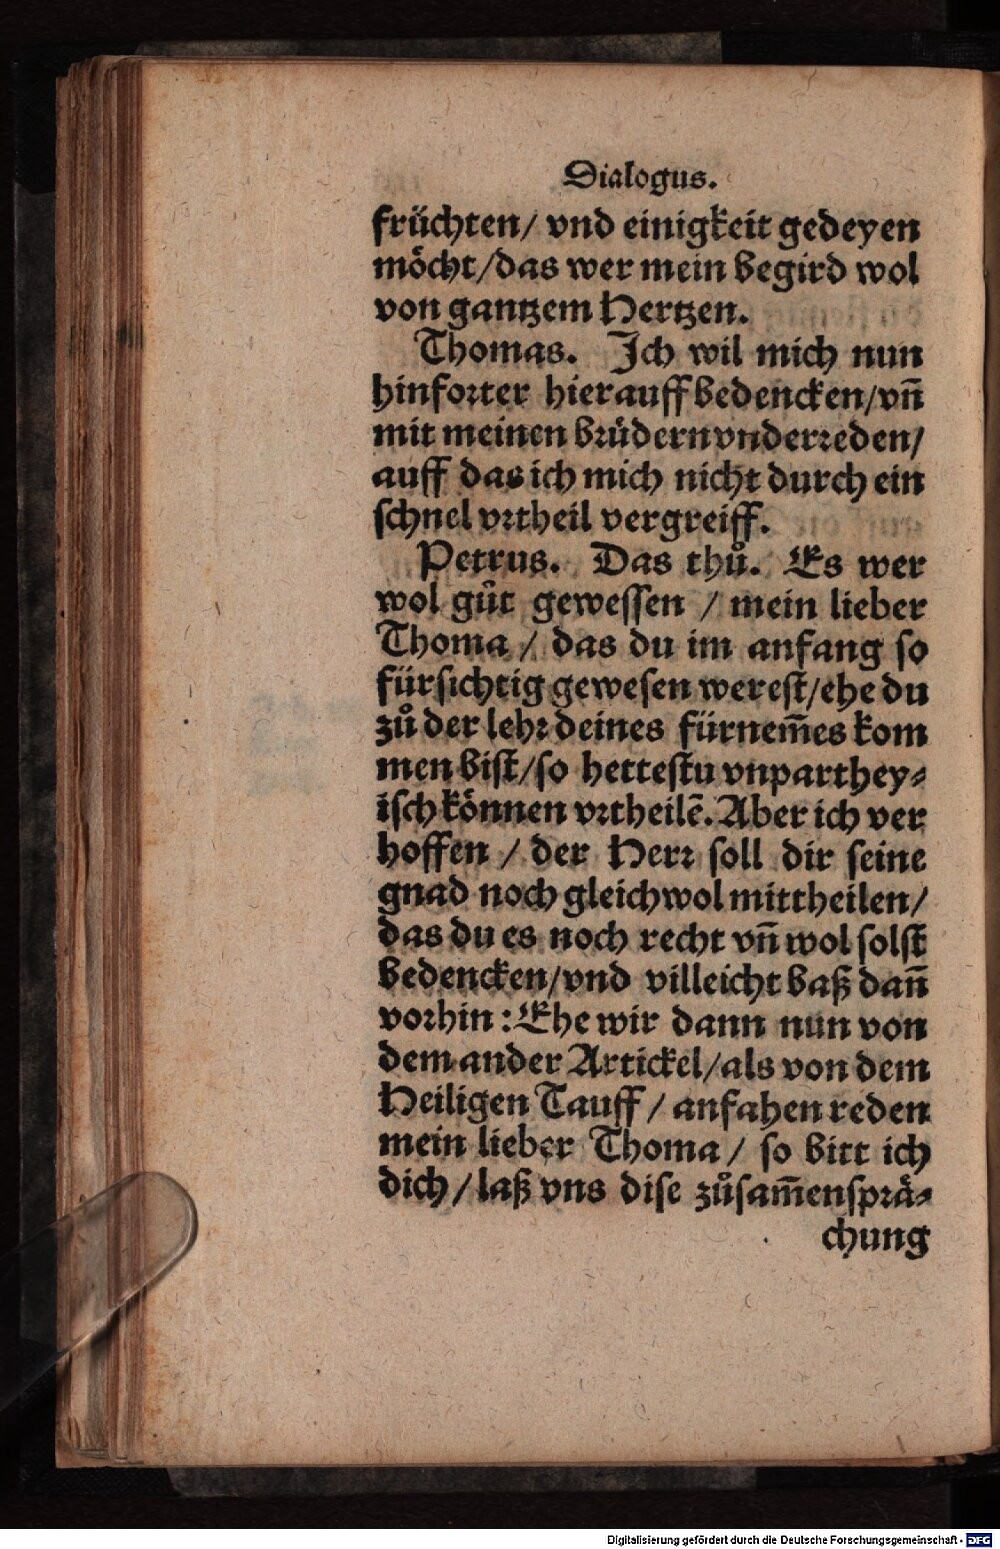 Dialogus.
früchten/ vnd einigkeit gedeyen
möcht/das wer mein begird wol
von gantzem Hertzen.
Thomas. Ich wil mich nun
hinforter hierauff bedencken/vn̄
mit meinen brüdern vnderreden/
auff das ich mich nicht durch ein
schnel vrtheil vergreiff.
Petrus. Das thů. Es wer
wol gůt gewessen / mein lieber
Thoma / das du im anfang so
fürsichtig gewesen werest/ehe du
zů der lehr deines fürnem̄es kom
men bist/so hettestu vnparthey⸗
isch können vrtheilē. Aber ich ver
hoffen / der Herr soll dir seine
gnad noch gleichwol mittheilen/
das du es noch recht vn̄ wol solst
bedencken/vnd villeicht baß dan̄
vorhin: Ehe wir dann nun von
dem ander Artickel/als von dem
Heiligen Tauff / anfahen reden
mein lieber Thoma / so bitt ich
dich/laß vns dise zůsam̄ensprä⸗
chung
Digitalisierung gefördert durch die Deutsche Forschungsgemeinschaft - DFG